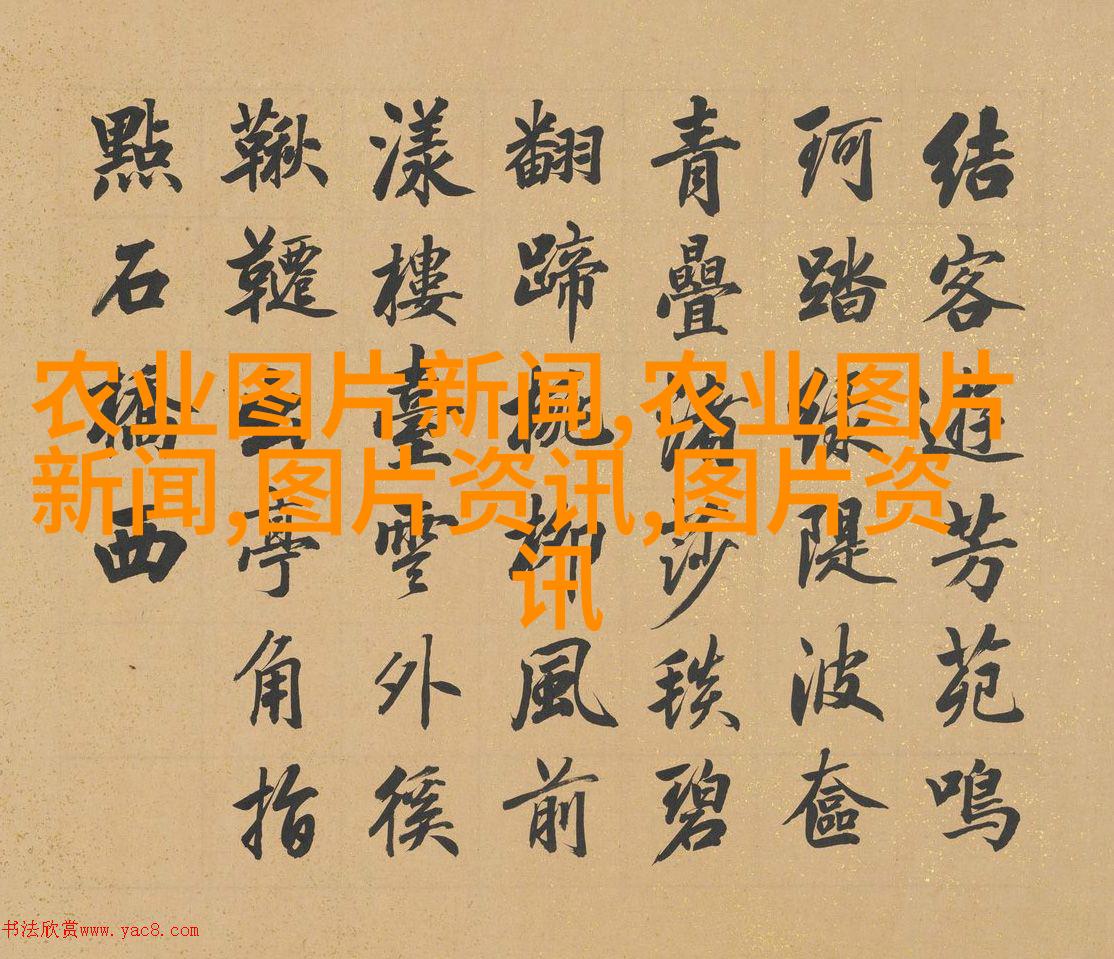 結客遊芳苑鳴
珂踏綠隄波奩
青疊渚莎毯碧
翻蹄柳風前
漾樓臺雲外徯
鞦韆亭角指
點石橋西
农业图片新闻,农业图片
新闻,图片资讯,图片资
讯
书法欣赏www.yac8.com